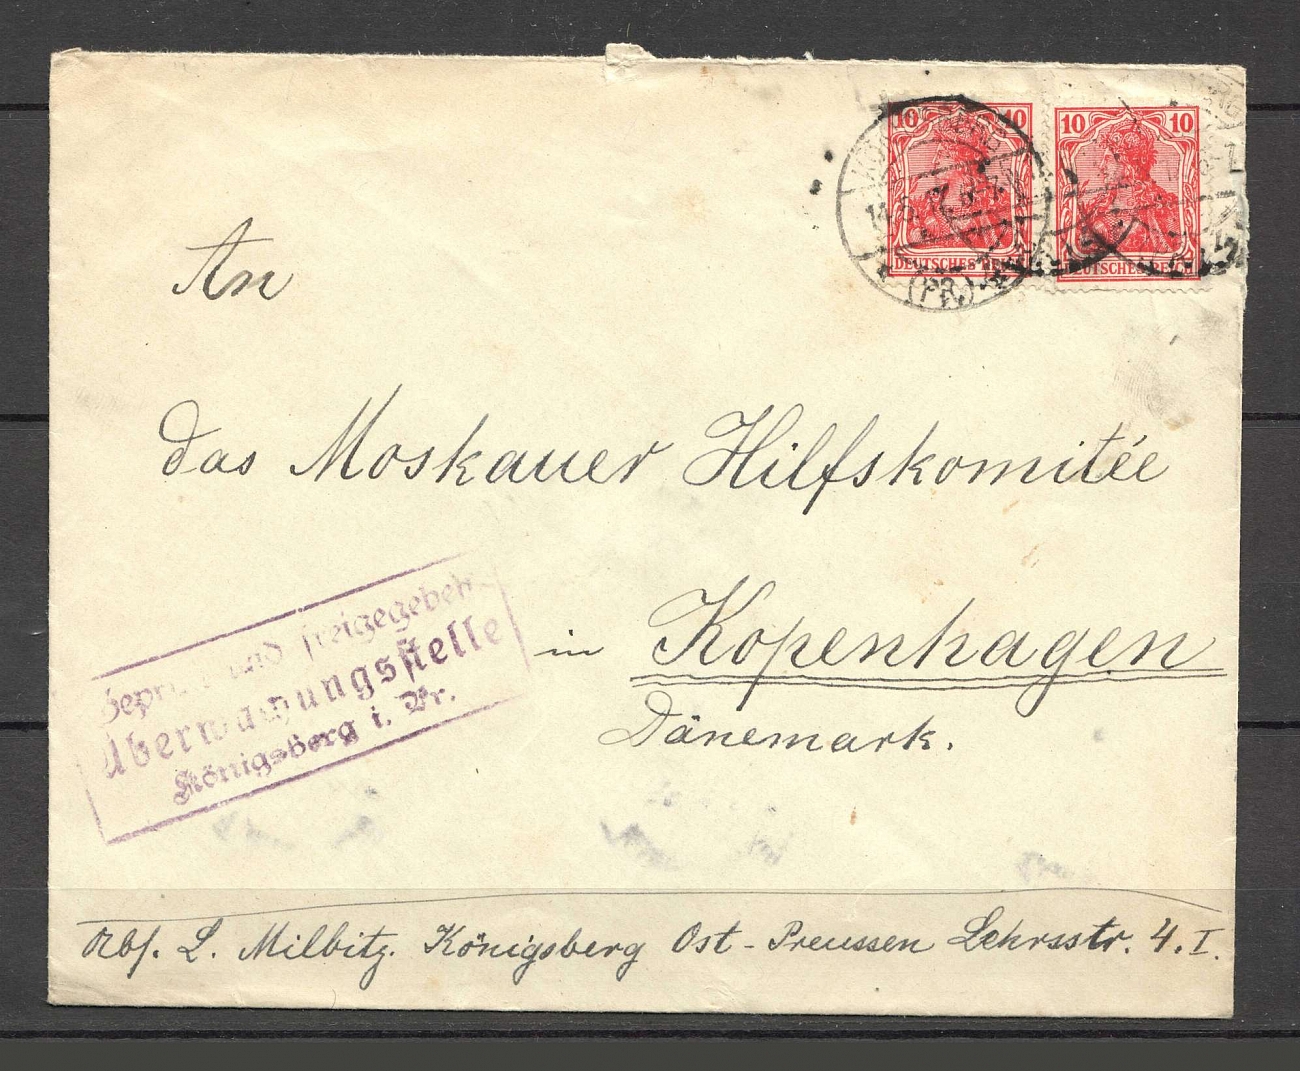 10 10 10 10
DEUTSCHES REICH DEUTSCHES REICH
(PR.)
An
das Moskauer Hilfskomitée
in Kopenhagen
Dänemark.
und freigegeben
Überwachungsstelle
Königsberg i. Pr.
Abs. L. Milbitz. Königsberg Ost-Preussen Lehrsstr. 4. I.